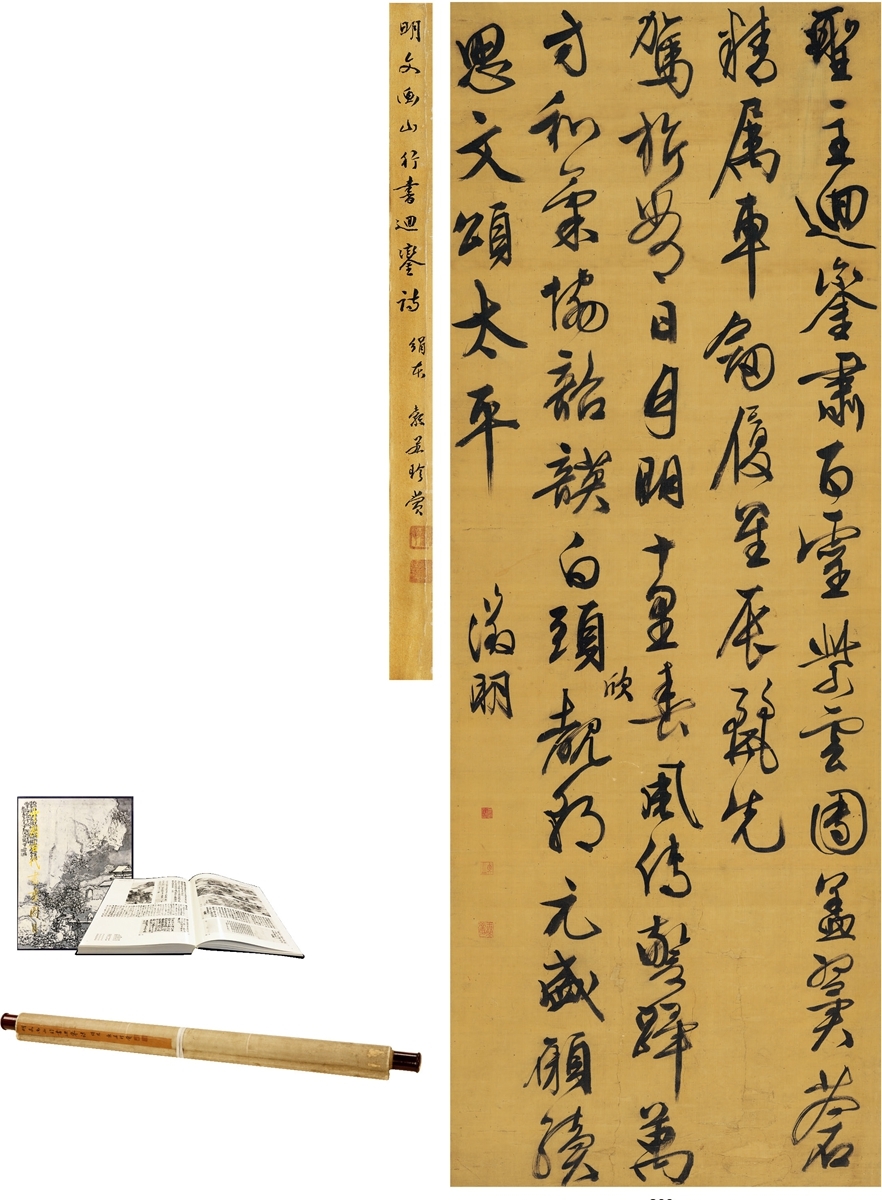 聖主迴鑾肅百靈紫雲團蓋翼蒼
精属車劍履星辰麗先
駕旂常日月明十里春風傳警蹕萬
方和氣協韶韺白頭欣覩朝元盛願續
思文頌太平
徵明
明文衡山行書迴鑾詩
絹本
珍賞